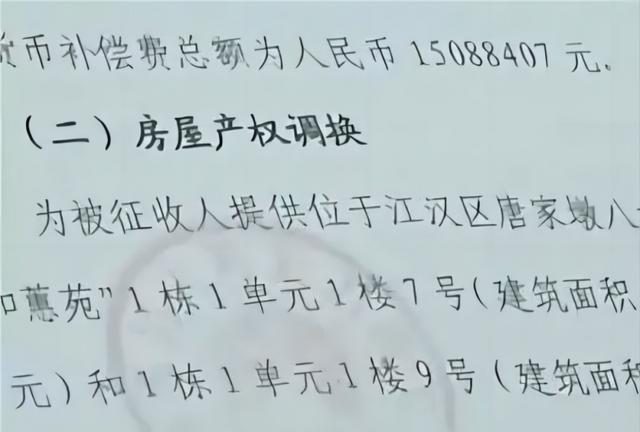 币补偿费总额为人民币 15088407 元。
（二）房屋产权调换
为被征收人提供位于江汉区唐家墩八
蕙苑”1 栋 1 单元 1 楼 7 号（建筑面积
元）和 1 栋 1 单元 1 楼 9 号（建筑面积